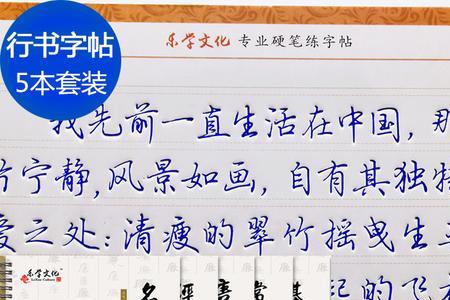 行书字帖
5本套装
乐学文化 专业硬笔练字帖
我先前一直生活在中国,那
片宁静,风景如画,自有其独特
爱之处:清瘦的翠竹摇曳生
乐学文化
LeXue Culture